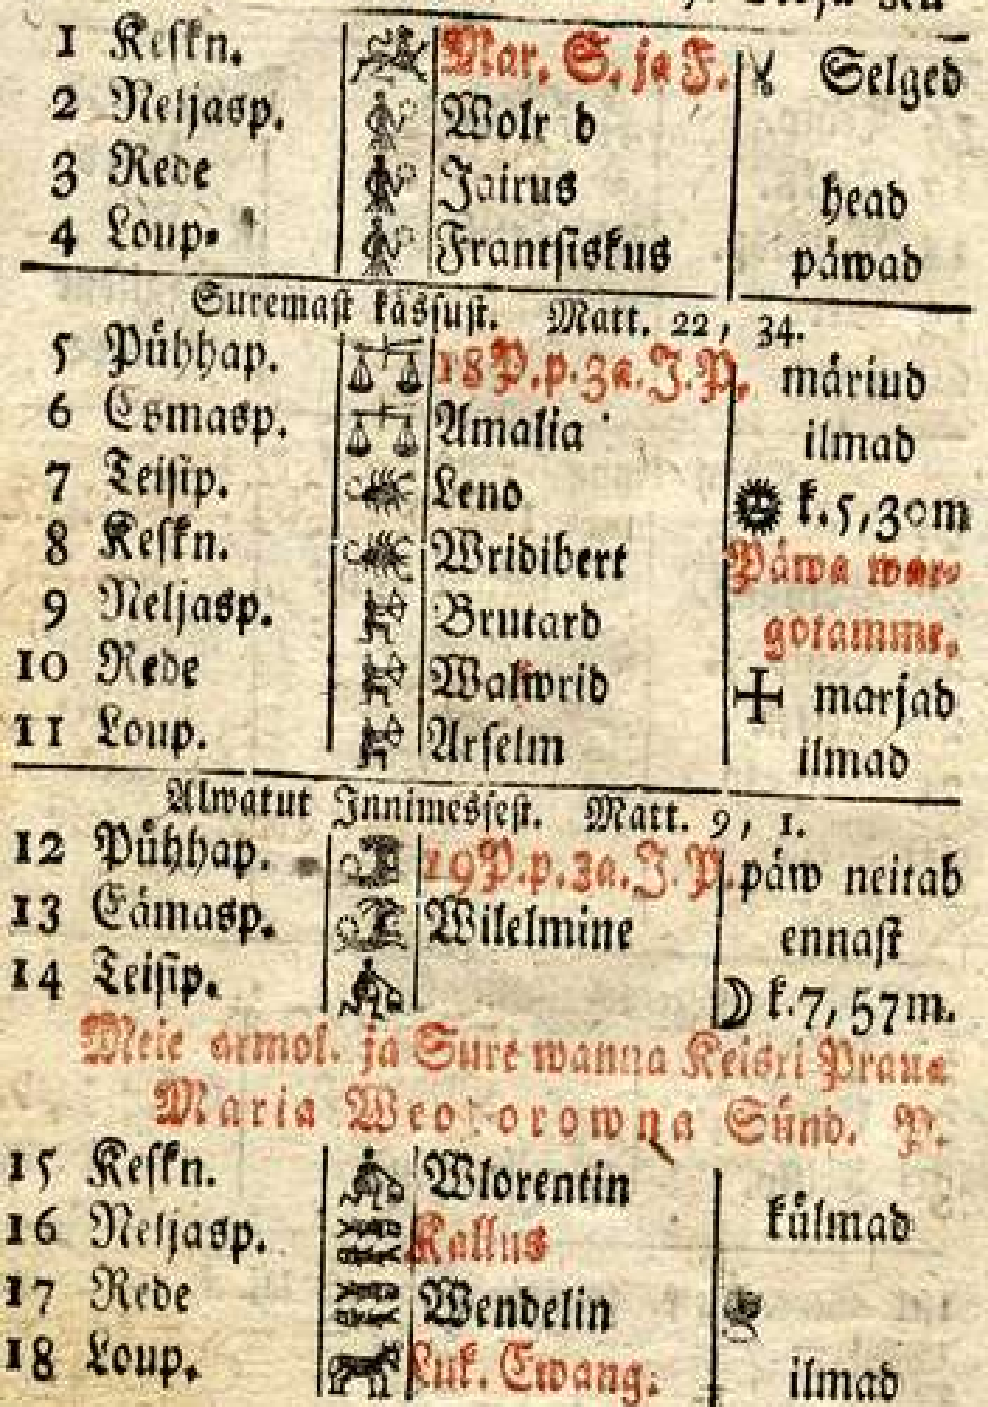 1 Keskn. Mar. S. ja F. Selged
2 Neljasp.
3 Rede Jairus head
4 Loup. Frantsiskus päwad
Suremast kässust. Matt. 22, 34.
5 Pühhap. 18 P. p. 3a. J. P. märjud
6 Esmasp. Amalia ilmad
7 Teisip. Leno k. 5, 30 m
8 Keskn. Wridibert Päwa war-
9 Neljasp. Brutard gotamme.
10 Rede Walwrid marjad
11 Loup. Arselm ilmad
Alwatut Innimessest. Matt. 9, 1.
12 Pühhap. 19 P. p. 3a. J. P. päw neitab
13 Esmasp. Wilelmine ennast
14 Teisip. ☽ k. 7, 57 m.
Meie armol. ja Sure wanna Keisri Praua
Maria Sünd. P.
15 Keskn. Wlorentin
16 Neljasp. Kallus külmad
17 Rede Wendelin
18 Loup. Luk. Ewang. ilmad